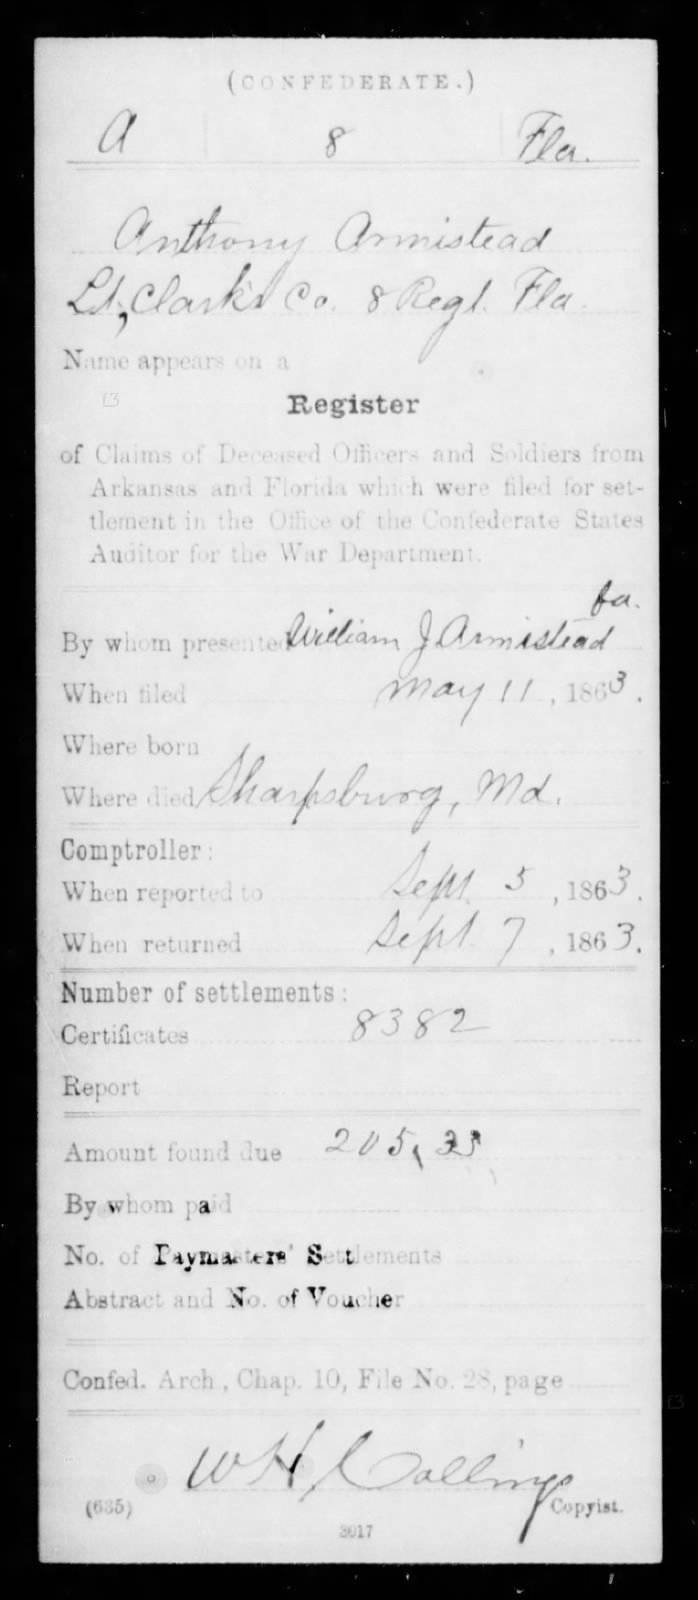 (CONFEDERATE.)
A 8 Fla.
Anthony Armistead
Lt, Clark's Co. 8 Regt. Fla.
Name appears on a
Register
of Claims of Deceased Officers and Soldiers from
Arkansas and Florida which were filed for set-
tlement in the Office of the Confederate States
Auditor for the War Department.
fa.
By whom presented William J Armistead
When filed May 11, 1863.
Where born
Where died Sharpsburg, Md.
Comptroller:
When reported to Sept. 5, 1863.
When returned Sept. 7, 1863.
Number of settlements:
Certificates 8382
Report
Amount found due 205,33
By whom paid
No. of Paymasters' Settlements
Abstract and No. of Voucher
Confed. Arch., Chap. 10, File No. 28, page
W H Collins
Copyist.
(635)
3017